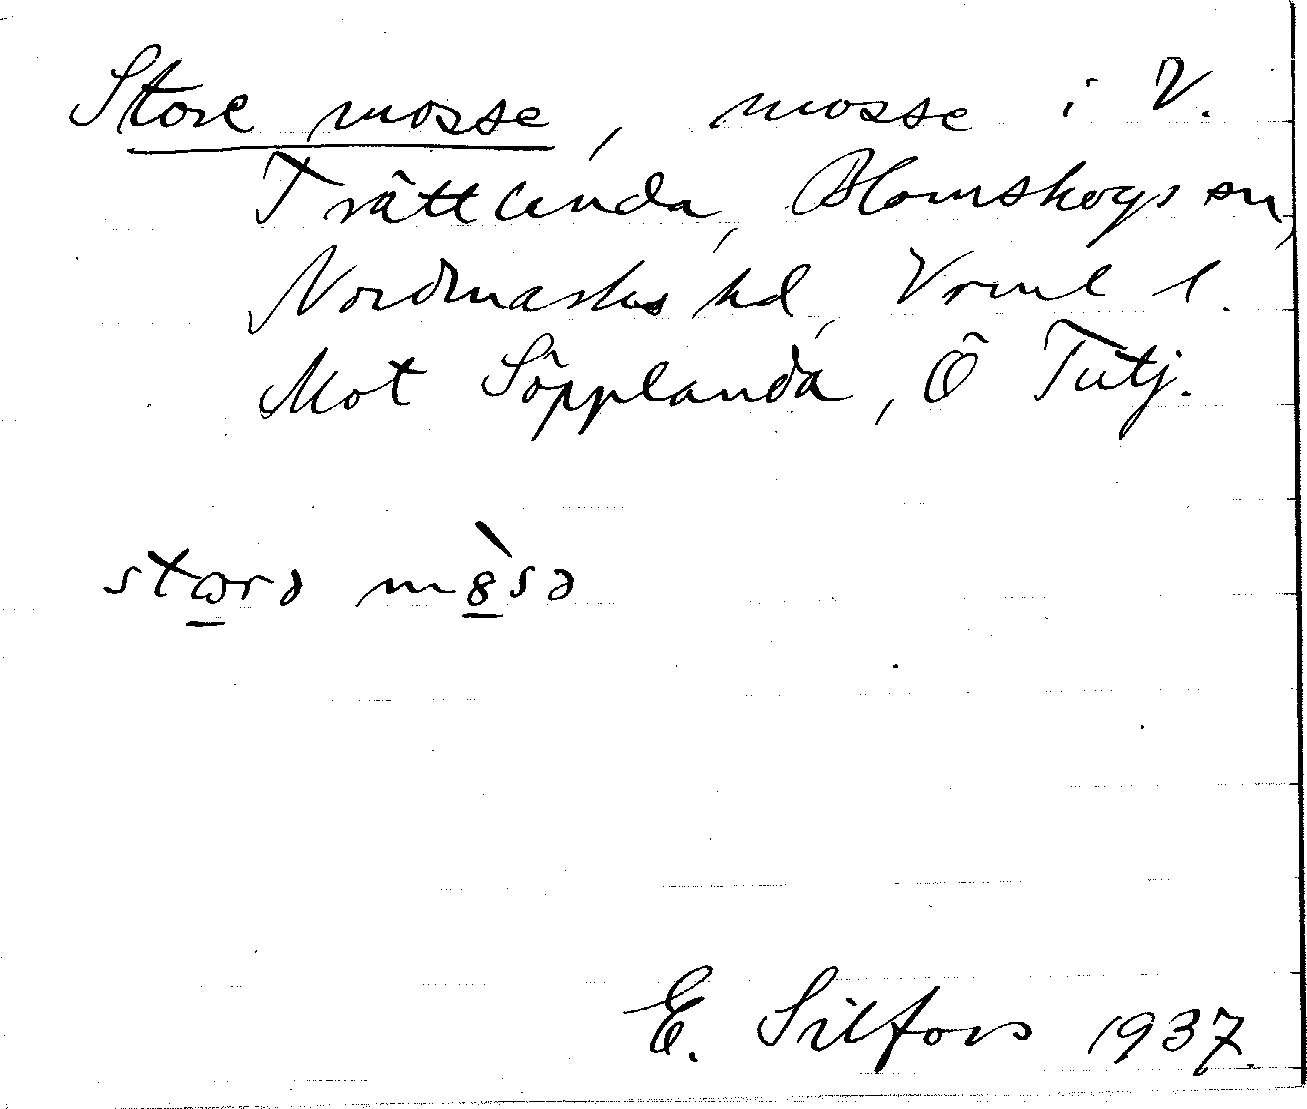 Store mosse, mosse i V.
Trättlanda, Blomskogs sn,
Nordmarks hd, Vrml l.
Mot Söpplanda, Ö Tutj.
stɷrə mȣ̀sə
E. Silfors 1937.